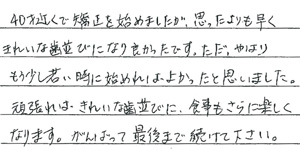 40才近くで矯正を始めましたが、思ったよりも早く
きれいな歯並びになり良かったです。ただ、やはり
もう少し若い時に始めればよかったと思いました。
頑張ればきれいな歯並びに、食事もさらに楽しく
なります。がんばって最後まで続けて下さい。